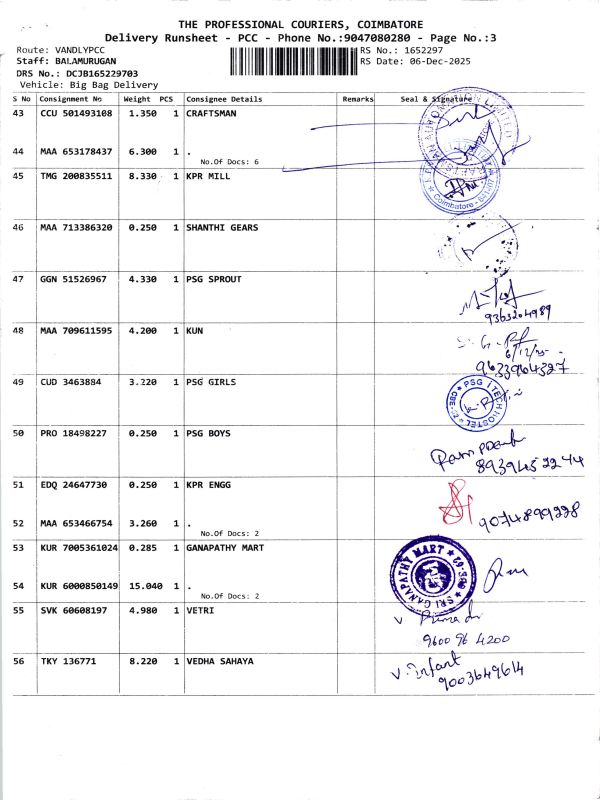 THE PROFESSIONAL COURIERS, COIMBATORE
Delivery Runsheet - PCC - Phone No.:9047080280 - Page No.:3
Route: VANDLYPCC
RS No.: 1652297
Staff: BALAMURUGAN
RS Date: 06-Dec-2025
DRS No.: DCJB165229703
Vehicle: Big Bag Delivery
S No Consignment No Weight PCS Consignee Details Remarks Seal & Signature
43 CCU 501493108 1.350 1 CRAFTSMAN
44 MAA 653178437 6.300 1 .
No.Of Docs: 6
45 TMG 200835511 8.330 1 KPR MILL
Coimbatore
46 MAA 713386320 0.250 1 SHANTHI GEARS
47 GGN 51526967 4.330 1 PSG SPROUT
9363204989
48 MAA 709611595 4.200 1 KUN
6/12/25
9633964327
49 CUD 3463884 3.220 1 PSG GIRLS
PSG iTECH HOSTEL
50 PRO 18498227 0.250 1 PSG BOYS
8939452244
51 EDQ 24647730 0.250 1 KPR ENGG
9074899228
52 MAA 653466754 3.260 1 .
No.Of Docs: 2
53 KUR 7005361024 0.285 1 GANAPATHY MART
SRI GANAPATHY MART CBE-62
54 KUR 6000850149 15.040 1 .
No.Of Docs: 2
55 SVK 60608197 4.980 1 VETRI
9600 96 4200
56 TKY 136771 8.220 1 VEDHA SAHAYA
V. Infant
9003649614